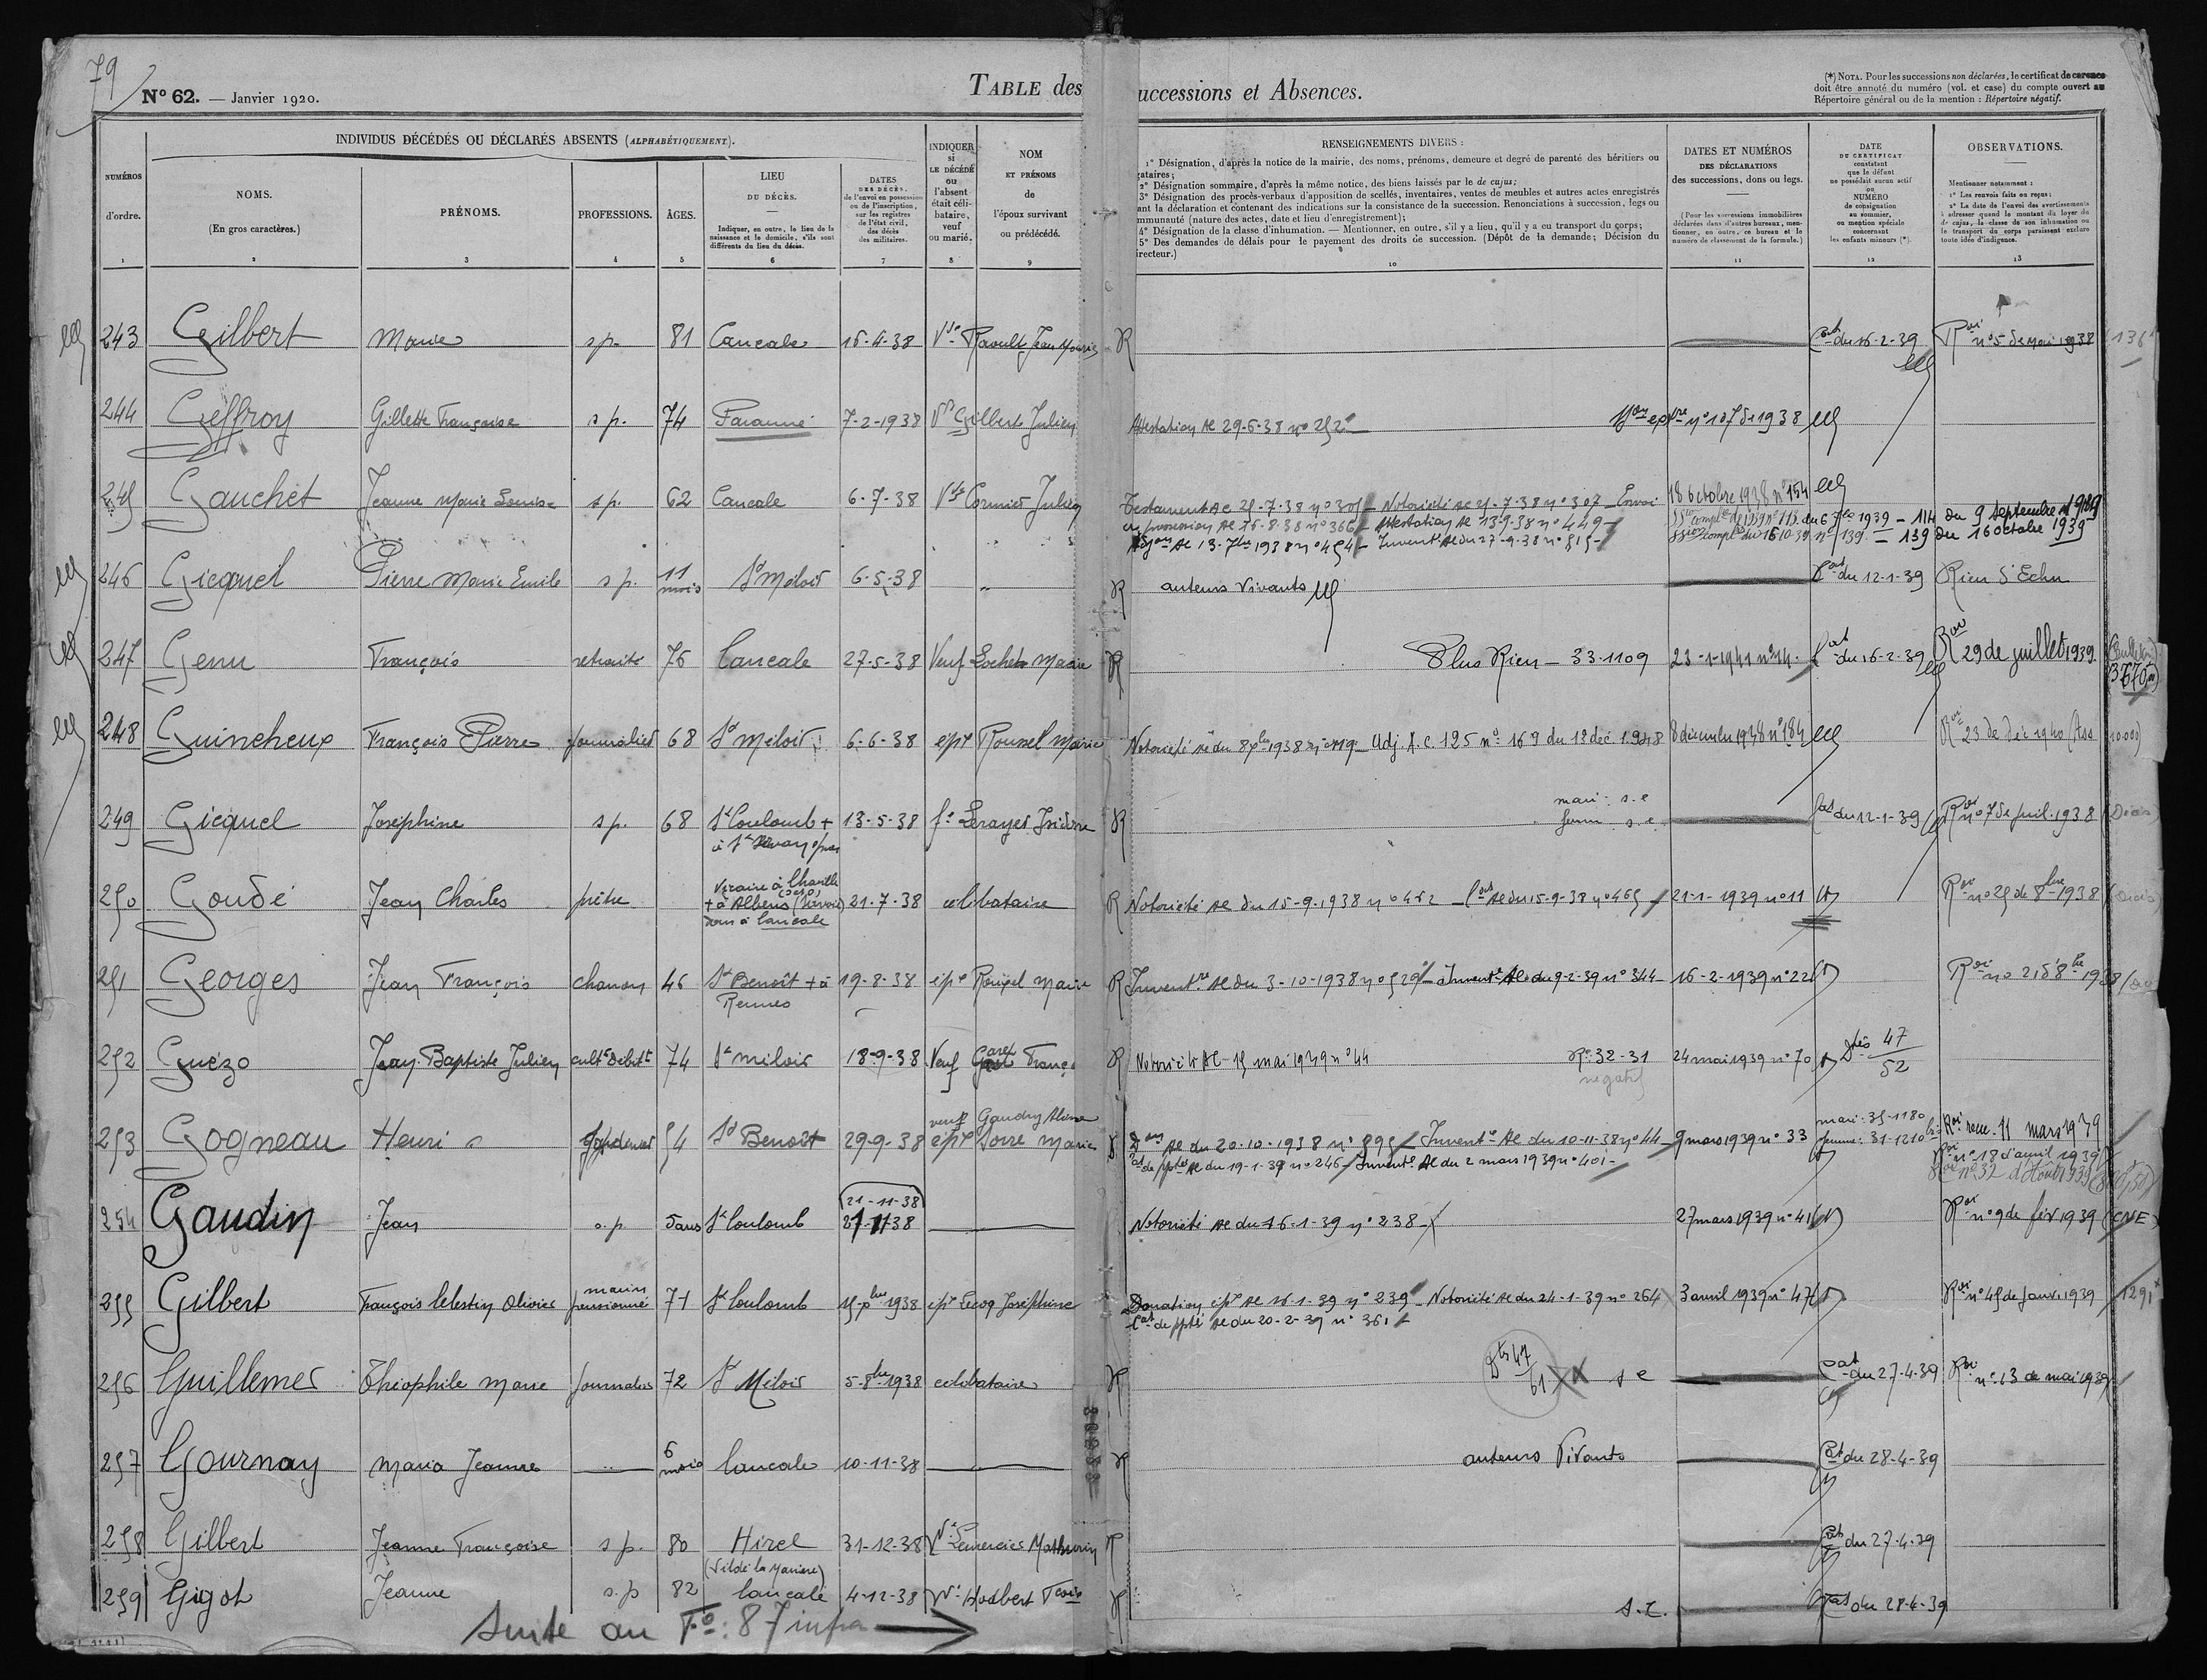 79
N° 62. — Janvier 1920.
TABLE des
uccessions et Absences.
(*) NOTA. Pour les successions non déclarées, le certificat de carence
doit être annoté du numéro (vol. et case) du compte ouvert au
Répertoire général ou de la mention : Répertoire négatif.
INDIVIDUS DÉCÉDÉS OU DÉCLARÉS ABSENTS (ALPHABÉTIQUEMENT).
NUMÉROS
d'ordre.
1
NOMS.
(En gros caractères.)
2
PRÉNOMS.
3
PROFESSIONS.
4
ÂGES.
5
LIEU
DU DÉCÈS.
Indiquer, en outre, le lieu de la
naissance et le domicile, s'ils sont
différents du lieu du décès.
6
DATES
DES DÉCÈS,
de l'envoi en possession
ou de l'inscription,
sur les registres
de l'état civil,
des décès
des militaires.
7
INDIQUER
si
LE DÉCÉDÉ
ou
l'absent
était céli-
bataire,
veuf
ou marié.
8
NOM
ET PRÉNOMS
de
l'époux survivant
ou prédécédé.
9
RENSEIGNEMENTS DIVERS :
1° Désignation, d'après la notice de la mairie, des noms, prénoms, demeure et degré de parenté des héritiers ou
gataires;
2° Désignation sommaire, d'après la même notice, des biens laissés par le de cujus;
3° Désignation des procès-verbaux d'apposition de scellés, inventaires, ventes de meubles et autres actes enregistrés
ant la déclaration et contenant des indications sur la consistance de la succession. Renonciations à succession, legs ou
mmunauté (nature des actes, date et lieu d'enregistrement);
4° Désignation de la classe d'inhumation. — Mentionner, en outre, s'il y a lieu, qu'il y a eu transport du corps;
5° Des demandes de délais pour le payement des droits de succession. (Dépôt de la demande; Décision du
irecteur.)
10
DATES ET NUMÉROS
DES DÉCLARATIONS
des successions, dons ou legs.
(Pour les successions immobilières
déclarées dans d'autres bureaux, men-
tionner, en outre, ce bureau et le
numéro de classement de la formule.)
11
DATE
DU CERTIFICAT
constatant
que le défunt
ne possédait aucun actif
ou
NUMÉRO
de consignation
au sommier,
ou mention spéciale
concernant
les enfants mineurs (*).
12
OBSERVATIONS.
Mentionner notamment :
1° Les renvois faits ou reçus;
2° La date de l'envoi des avertissements
à adresser quand le montant du loyer du
de cujus, la classe de son inhumation ou
le transport du corps paraissent exclure
toute idée d'indigence.
13
243 Gilbert Marie sp. 81 Cancale 16-4-38 Vve Raoult Jean Marie R Cat du 16-2-39 Roi n° 5 de Mai 1938
244 Geffroy Gillette Françoise s p. 74 Paramé 7-2-1938 Vve Gilbert Julien
Attestation AC 29-6-38 n° 252 n° 107 de 1938
245 Gauchet Jeanne Marie Louise s p. 62 Cancale 6-7-38 Vve Cormier Julien
Testament AC 25-7-38 n° 305 — Notoriété AC 25-7-38 n° 307 — Envoi 18 octobre 1938 n° 154
en possession AC 16-8-38 n° 366 — Attestation AC 13-9-38 n° 449 1939 — 114 du 9 septembre 1939
AC 13-7bre 1938 n° 454 — Invent. AC du 27-9-38 n° 515 — 139 du 16 octobre 1939
246 Gicquel Pierre Marie Emile s p. 11 mois St Méloir 6-5-38 " R auteurs vivants Cat du 12-1-39 Rien d'Echu
247 Genu François retraité 76 Cancale 27-5-38 Veuf Lochet Marie R Plus Rien — 33-1109 23-1-1941 n° 14. Cat du 16-2-39 Roi 29 de juillet 1939
248 Guincheux François Pierre journalier 68 St Méloir 6-6-38 épx Roussel Marie
Notoriété AC du 8 Xbre 1938 — Adj. A.C. 125 n° 169 du 18 déc 1948 8 décembre 1938 n° 184 Roi 23 de déc 1940 (Ass 10.000)
249 Gicquel Joséphine s p. 68 St Coulomb + 13-5-38 fe Lerayer Isidore R
à St Servan
mari : s.e
femme s.e
Cat du 12-1-39 Roi n° 7 de Juil. 1938
250 Goudé Jean Charles prêtre Vicaire à Chaville
+ à Albens (Savoie)
dom à Cancale
21-7-38 célibataire R Notoriété AC du 15-9-1938 n° 462 — Cat AC du 15-9-38 n° 465 21-1-1939 n° 11 Roi n° 25 de 8bre 1938
251 Georges Jean François chanon 46 St Benoît + à
Rennes
19-8-38 épx Rouxel Marie R Inventre AC du 3-10-1938 n° 529 — Invent. AC du 9-2-39 n° 344 — 16-2-1939 n° 22 Roi n° 21 d'8bre 1938
252 Guézo Jean-Baptiste Julien cultr Débitt 74 St méloir 18-9-38 Veuf Garel Franç R Notoriété AC 15 mai 1939 n° 44 Re 32-31
négatif
24 mai 1939 n° 70 Dtés 47/52
253 Gogneau Henri jardinier 54 St Benoît 29-9-38 épx Sorre Marie
veuf Gaudry
AC du 20-10-1938 n° 595 Invent. AC du 10-11-38 n° 44 — 9 mars 1939 n° 33
mari : 35-1180
femme : 31-1210
Roi 11 mars 1939
AC du 19-1-39 n° 246 — Invent. AC du 2 mars 1939 n° 401 —
Roi n° 18 d'avril 1939
n° 32 d'Août 1939
254 Gaudin Jean s.p. 5 ans St Coulomb 21-11-38
21-11-38
Notoriété AC du 16-1-39 n° 238 27 mars 1939 n° 41 Roi n° 9 de fév 1939
255 Gilbert François Célestin Olivier marin
pensionné 71 St Coulomb 15-Xbre 1938 épx Lecoq Joséphine
Donation épx AC 16-1-39 n° 239 — Notoriété AC du 24-1-39 n° 264 3 avril 1939 n° 47 Roi n° 45 de Janv. 1939 1291
Cat de ppté AC du 20-2-39 n° 361
256 Guillemer Théophile Marie journalier 72 St Méloir 5-8bre 1938 célibataire R Dts 47/61 s e Cat du 27-4-39 Roi n° 13 de mai 1939
257 Gournay Maria Jeanne 6 mois Cancale 10-11-38 R auteurs Vivants Cat du 28-4-39
258 Gilbert Jeanne Françoise s p. 80 Hirel
(Vildé la Marine)
31-12-38 Vve Lemercier Mathurin R Cat du 27-4-39
259 Gigot Jeanne s.p 82 Cancale 4-12-38 Vve Hodbert Fcois R s.e. Cat du 28-4-39
Suite au F°: 87 infra →